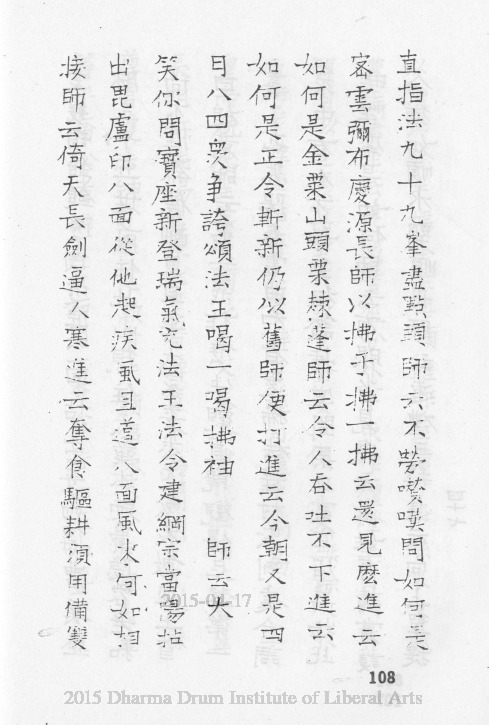 直指法九十九峯盡點頭師云不勞嘆問如何是
密雲彌布慶源長師以拂子拂一拂云還見麼進云
如何是金粟山頭栗棘蓬師云令人吞吐不下進云
如何是正令斬新仍以舊師便打進云今朝又是四
月八四眾爭誇頌法王喝一喝拂袖 師云大
笑你問寶座新登瑞氣充法王法令建綱宗當陽拈
出毘盧印八面從他起疾風且道八面風來何如相
接師云倚天長劍逼人寒進云奪食驅耕須用備雙
108
2015-04-17
2015 Dharma Drum Institute of Liberal Arts